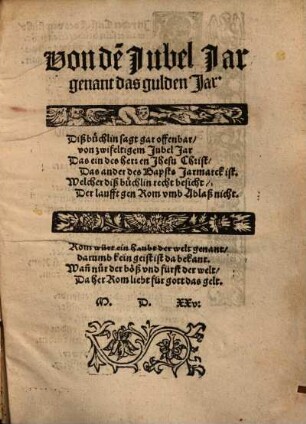 Von dē Jubel Jar
genant das gulden Jar
Diß büchlin sagt gar offenbar/
von zwifeltigem Jubel Jar
Das ein des herren Jhesu Christ/
Das ander des Bapsts Jarmarck ist.
Welcher diß büchlin recht besicht/
Der laufft gen Rom vmb Ablaß nicht.
Rom würt ein haubt der welt genant/
darumb kein geist ist da bekant.
Wañ nůr der böß vnd fürst der welt/
Da her Rom liebt für gott das gelt.
M. D. XXv.